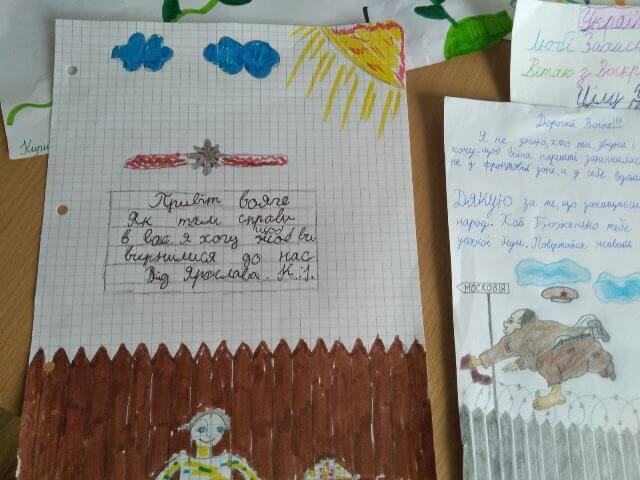 Привіт вояче
Як там справи
в вас я хочу щоб ви
вирнилися до нас
Від Ярослава. К.:).
Украї
Любі Захис
Вітаю з Воскр
Цілу
Дорогий Воїне!!!
Я не знаю, хто ти, звідки і
хочу, щоб війна нарешті закінчилась
не у фронтовій зоні, а у себе вдома
ДЯКУЮ за те, що захищаєш
народ. Хай Боженько тебе
усякої біди. Повертайся живим
МОСКОВІЯ
Кири